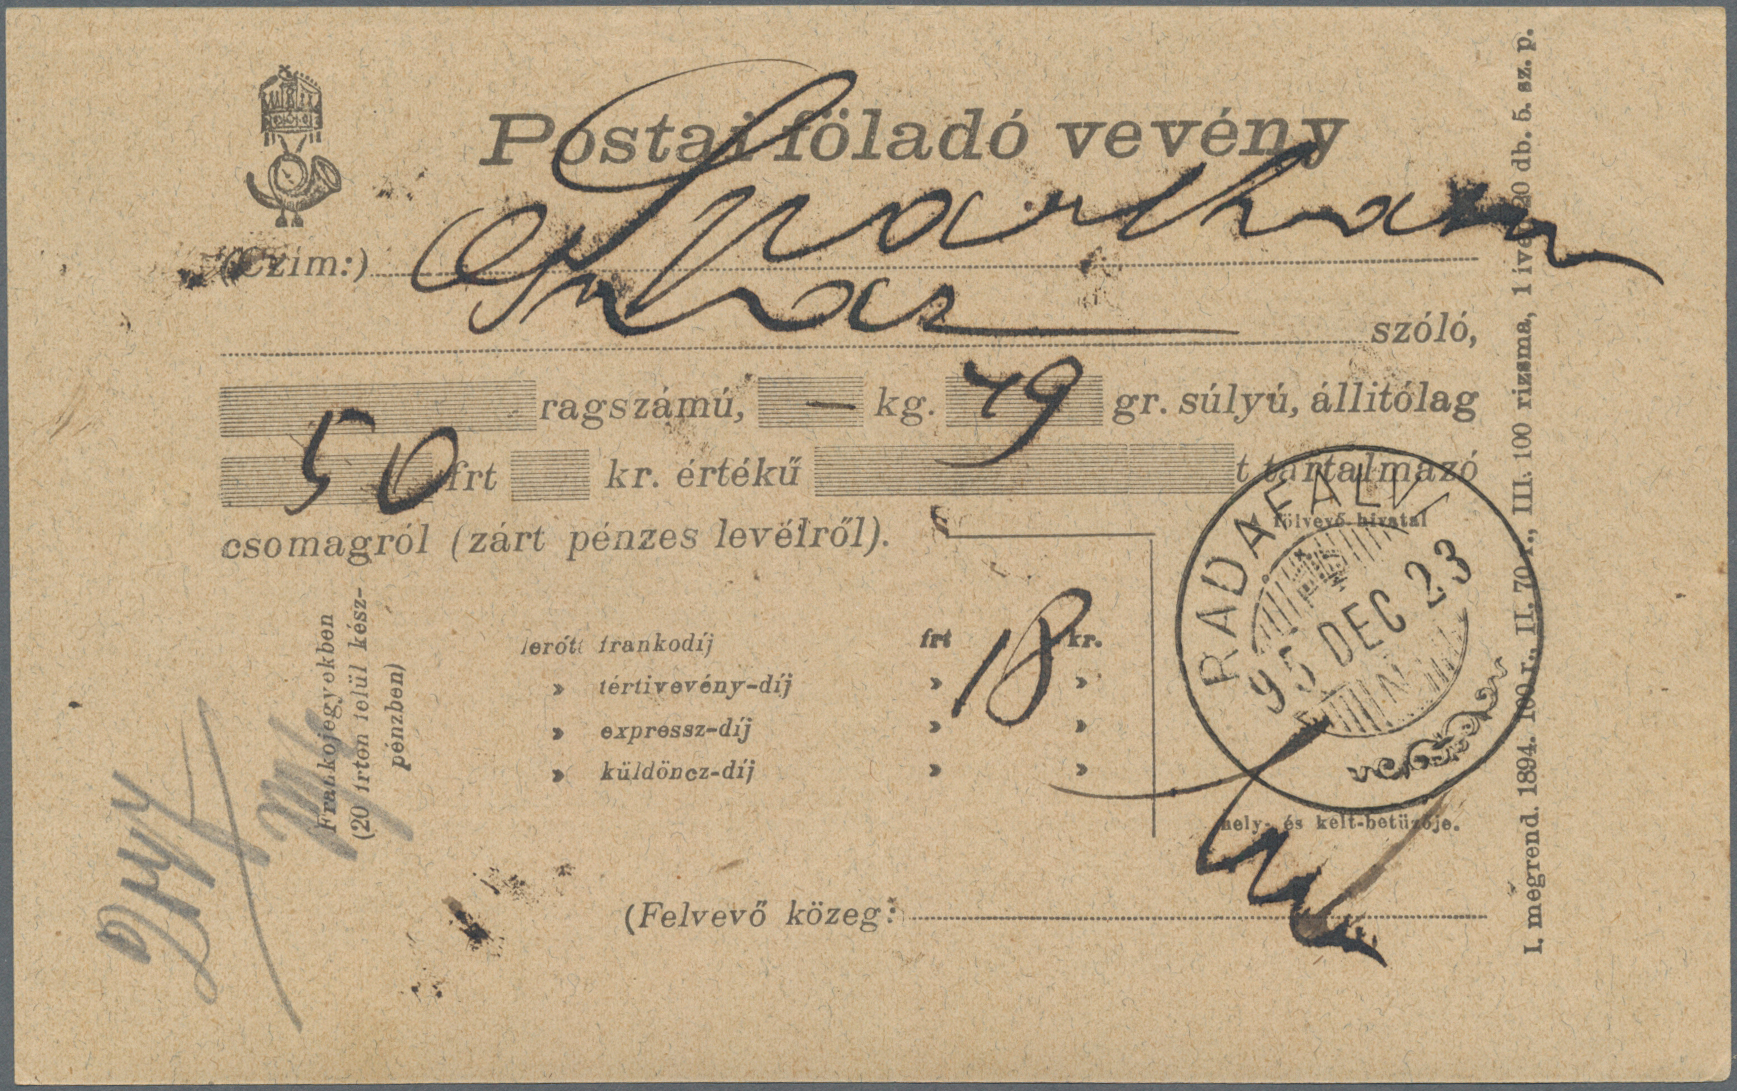 Postai föladó vevény
(Czim:)
szóló,
ragszámú, — kg. 79 gr. súlyú, állitólag
50 frt kr. értékű t tartalmazó
csomagról (zárt pénzes levélről).
A fölvevő-hivatal
RADAFALV
95 DEC 23
hely- és kelt-betüzője.
Frankojegyekben
(20 frton felül kész-
pénzben)
lerótt frankodíj frt 18 kr.
» tértivevény-díj » »
» expressz-díj » »
» küldöncz-díj » »
(Felvevő közeg:
I. megrend. 1894. 100 r., II. 70 r., III. 100 rizsma, 1 ive 20 db. 5. sz. p.